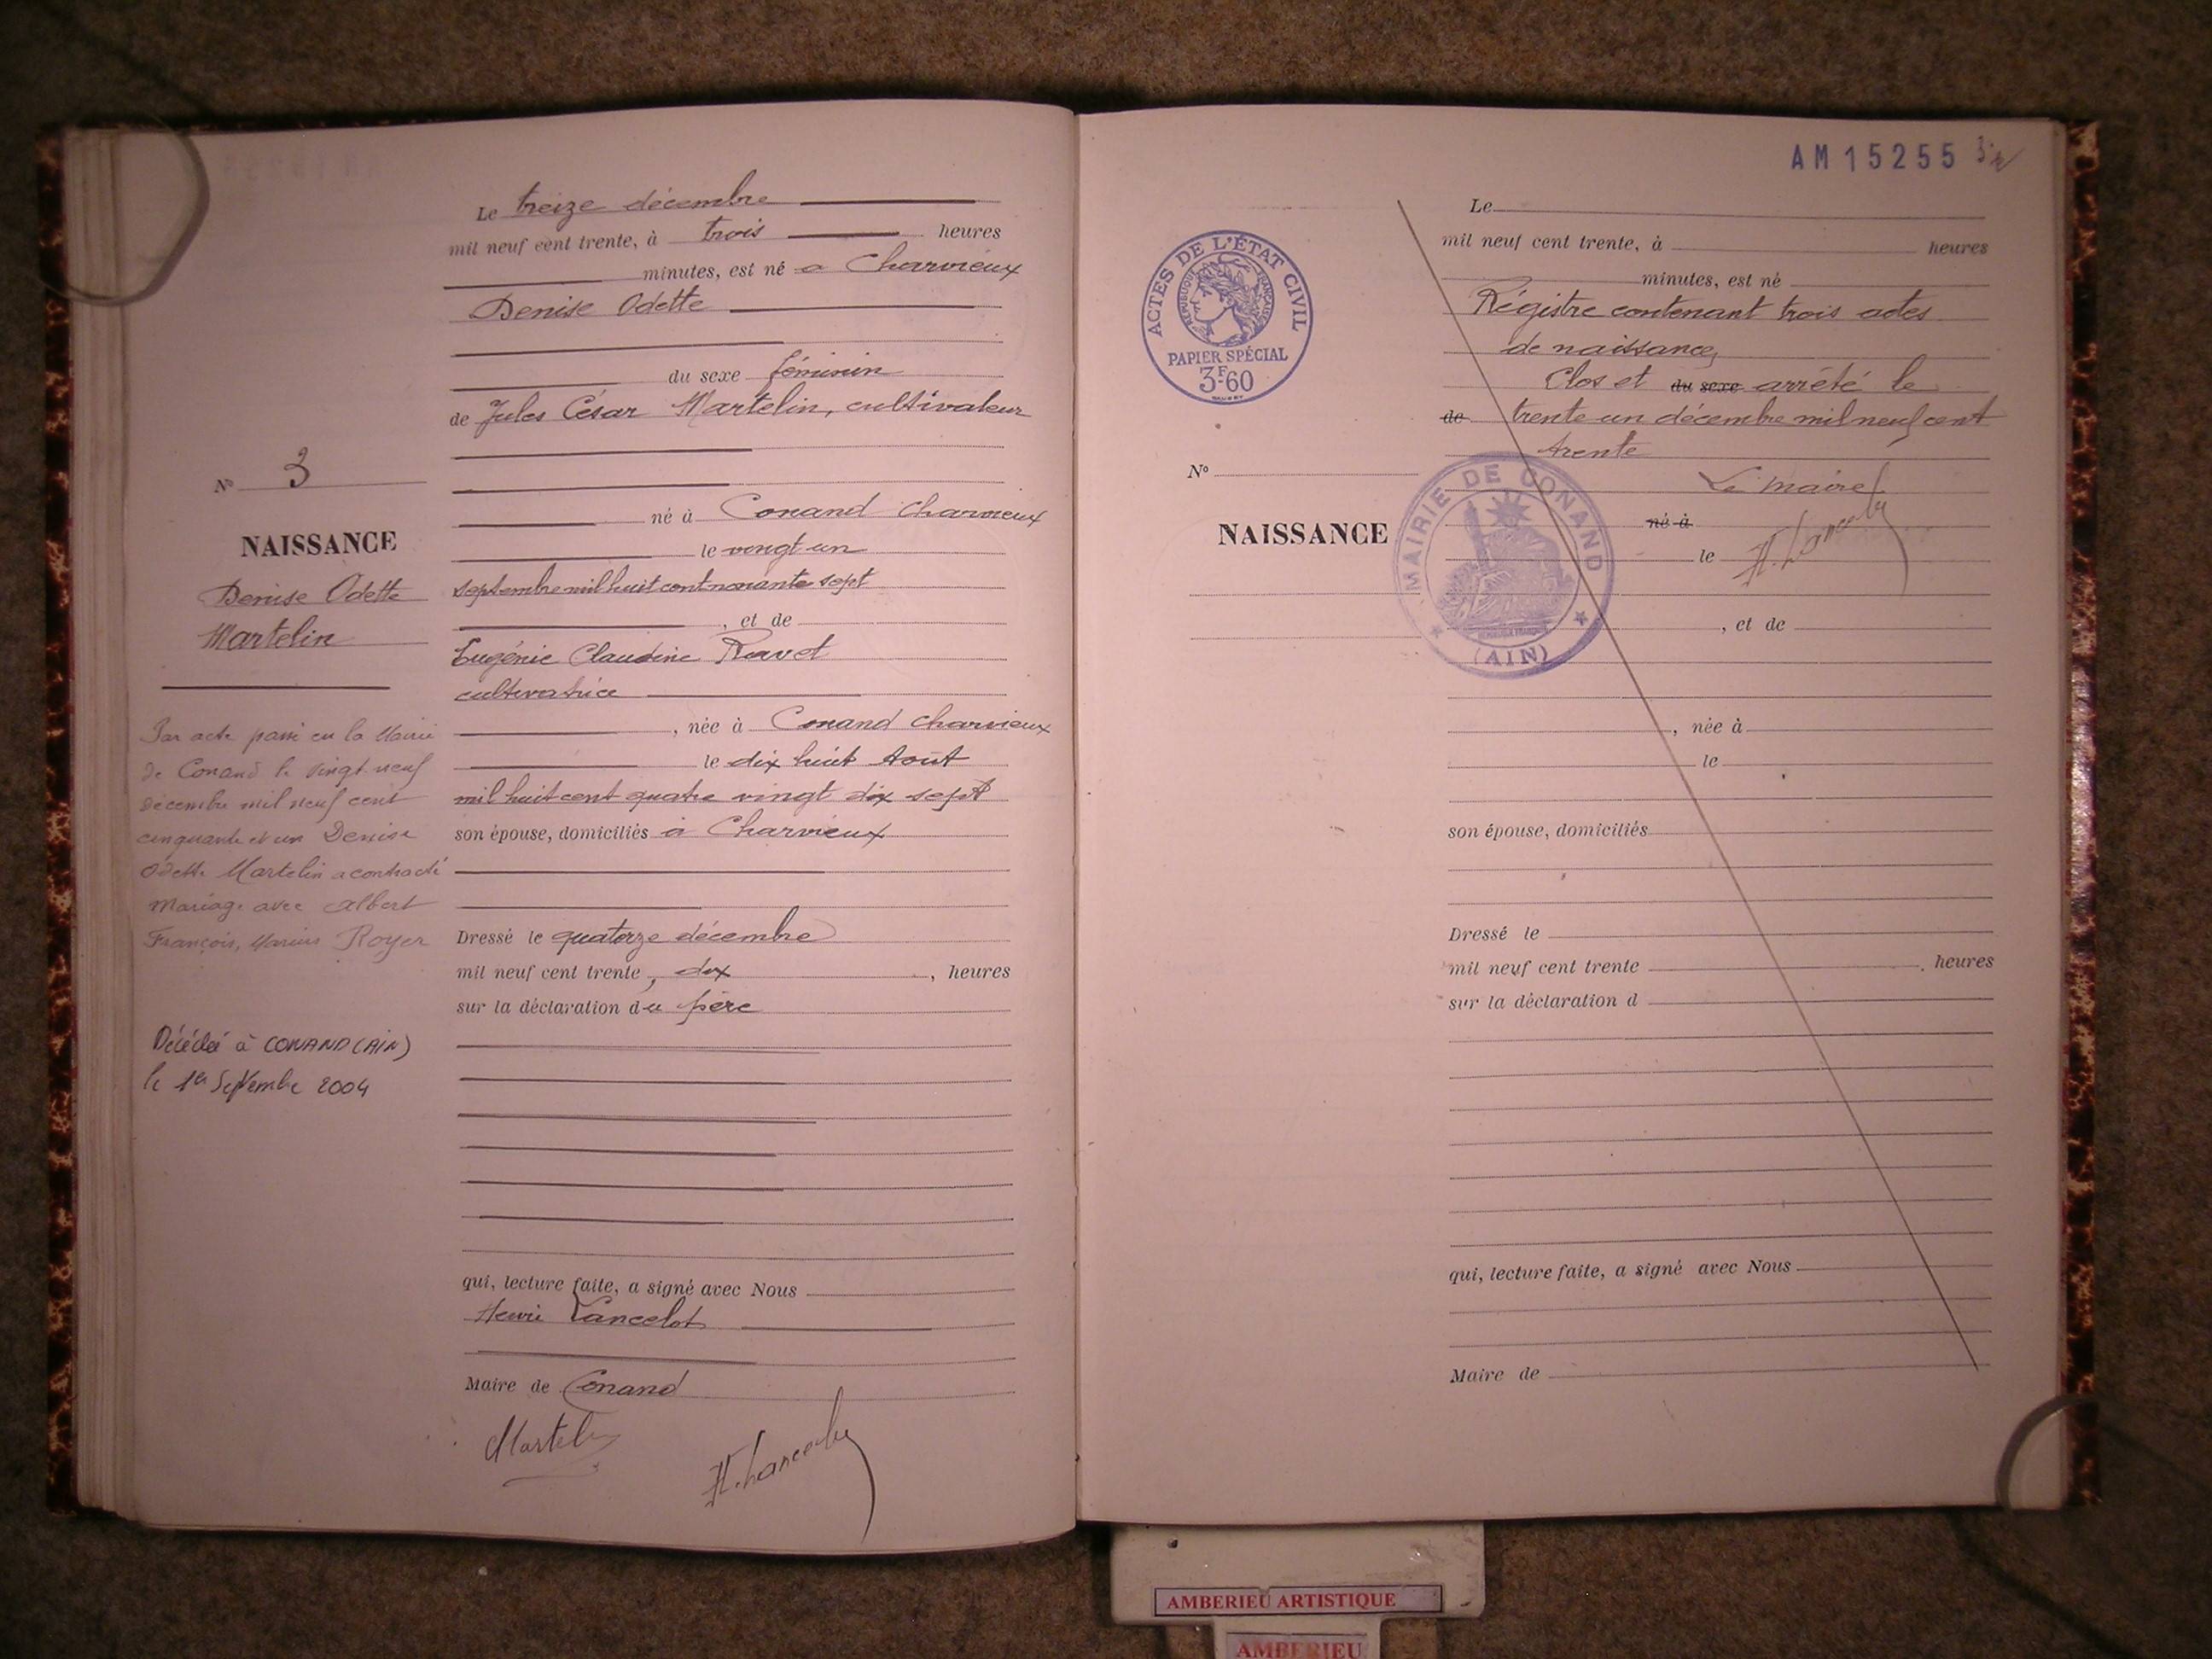 Le treize décembre
mil neuf cent trente, à trois heures
minutes, est né a Charvieux
Denise Odette
du sexe féminin
de Jules César Martelin, cultivateur
né à Conand Charvieux
le vingt un
septembre mil huit cent nonante sept
, et de
Eugénie Claudine Ravet
cultivatrice
, née à Conand Charvieux
le dix huit Aout
mil huit cent quatre vingt dix sept
son épouse, domiciliés à Charvieux
Dressé le quatorze décembre
mil neuf cent trente, dix , heures
sur la déclaration du père
qui, lecture faite, a signé avec Nous
Henri Lancelot
Maire de Conand
Martelin
H. Lancelot
No 3
NAISSANCE
Denise Odette
Martelin
Par acte passé en la Mairie
de Conand le vingt-neuf
décembre mil neuf cent
cinquante et un Denise
Odette Martelin a contracté
Mariage avec Albert
François, Marius Royer
Décédée à CONAND (AIN)
le 1er Septembre 2004
AM 15255
ACTES DE L'ÉTAT CIVIL
RÉPUBLIQUE FRANÇAISE
PAPIER SPÉCIAL
3F60
No
NAISSANCE
Le
mil neuf cent trente, à heures
minutes, est né
Régistre contenant trois actes
de naissance,
Clos et du sexe arrêté le
de trente un décembre mil neuf cent
trente
Le maire
né à
le H. Lancelot
MAIRIE DE CONAND
(AIN)
, et de
, née à
le
son épouse, domiciliés
Dressé le
mil neuf cent trente , heures
sur la déclaration d
qui, lecture faite, a signé avec Nous
Maire de
AMBERIEU ARTISTIQUE
AMBERIEU